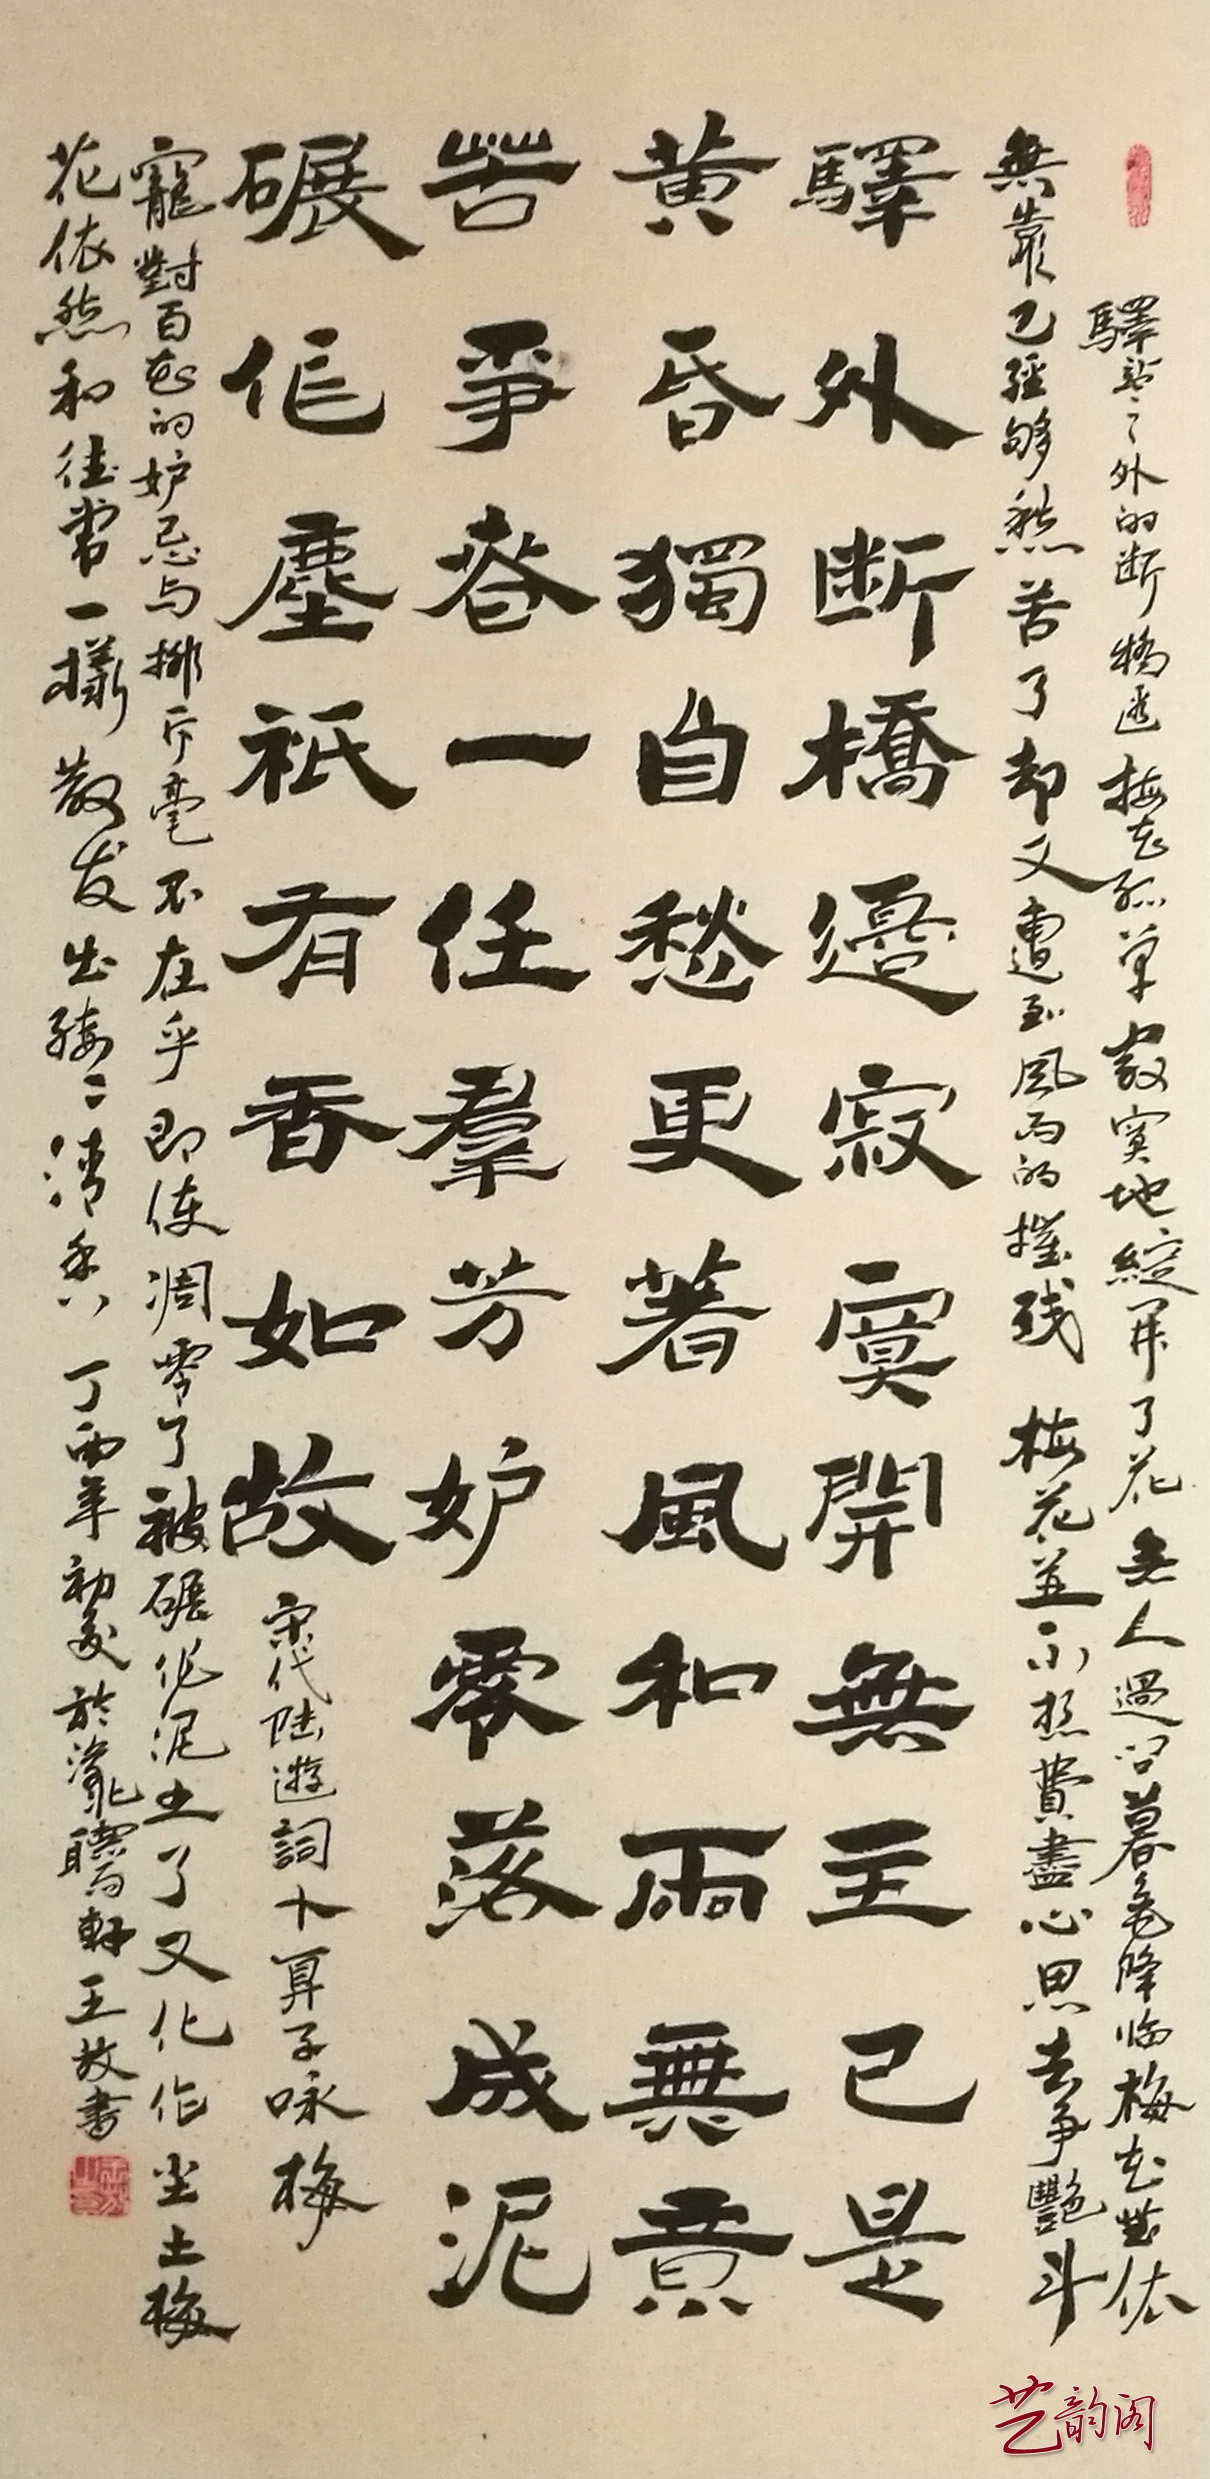 驛站之外的断橋邊梅花孤单寂寞地綻開了花无人過问暮色降临梅花無依
無靠已經够愁苦了却又遭到風雨的摧残梅花並不想費盡心思去争艷斗
驛外断橋邊寂寞開無主已是
黄昏獨自愁更著風和雨無意
苦爭春一任羣芳妒零落成泥
碾作塵祇有香如故
宋代陆遊詞卜算子咏梅
寵對百花的妒忌与排斥毫不在乎即使凋零了被碾作泥土了又化作尘土梅
花依然和往常一樣散发出缕缕清香丁酉年初夏於瀧驕軒王牧書
艺韵阁